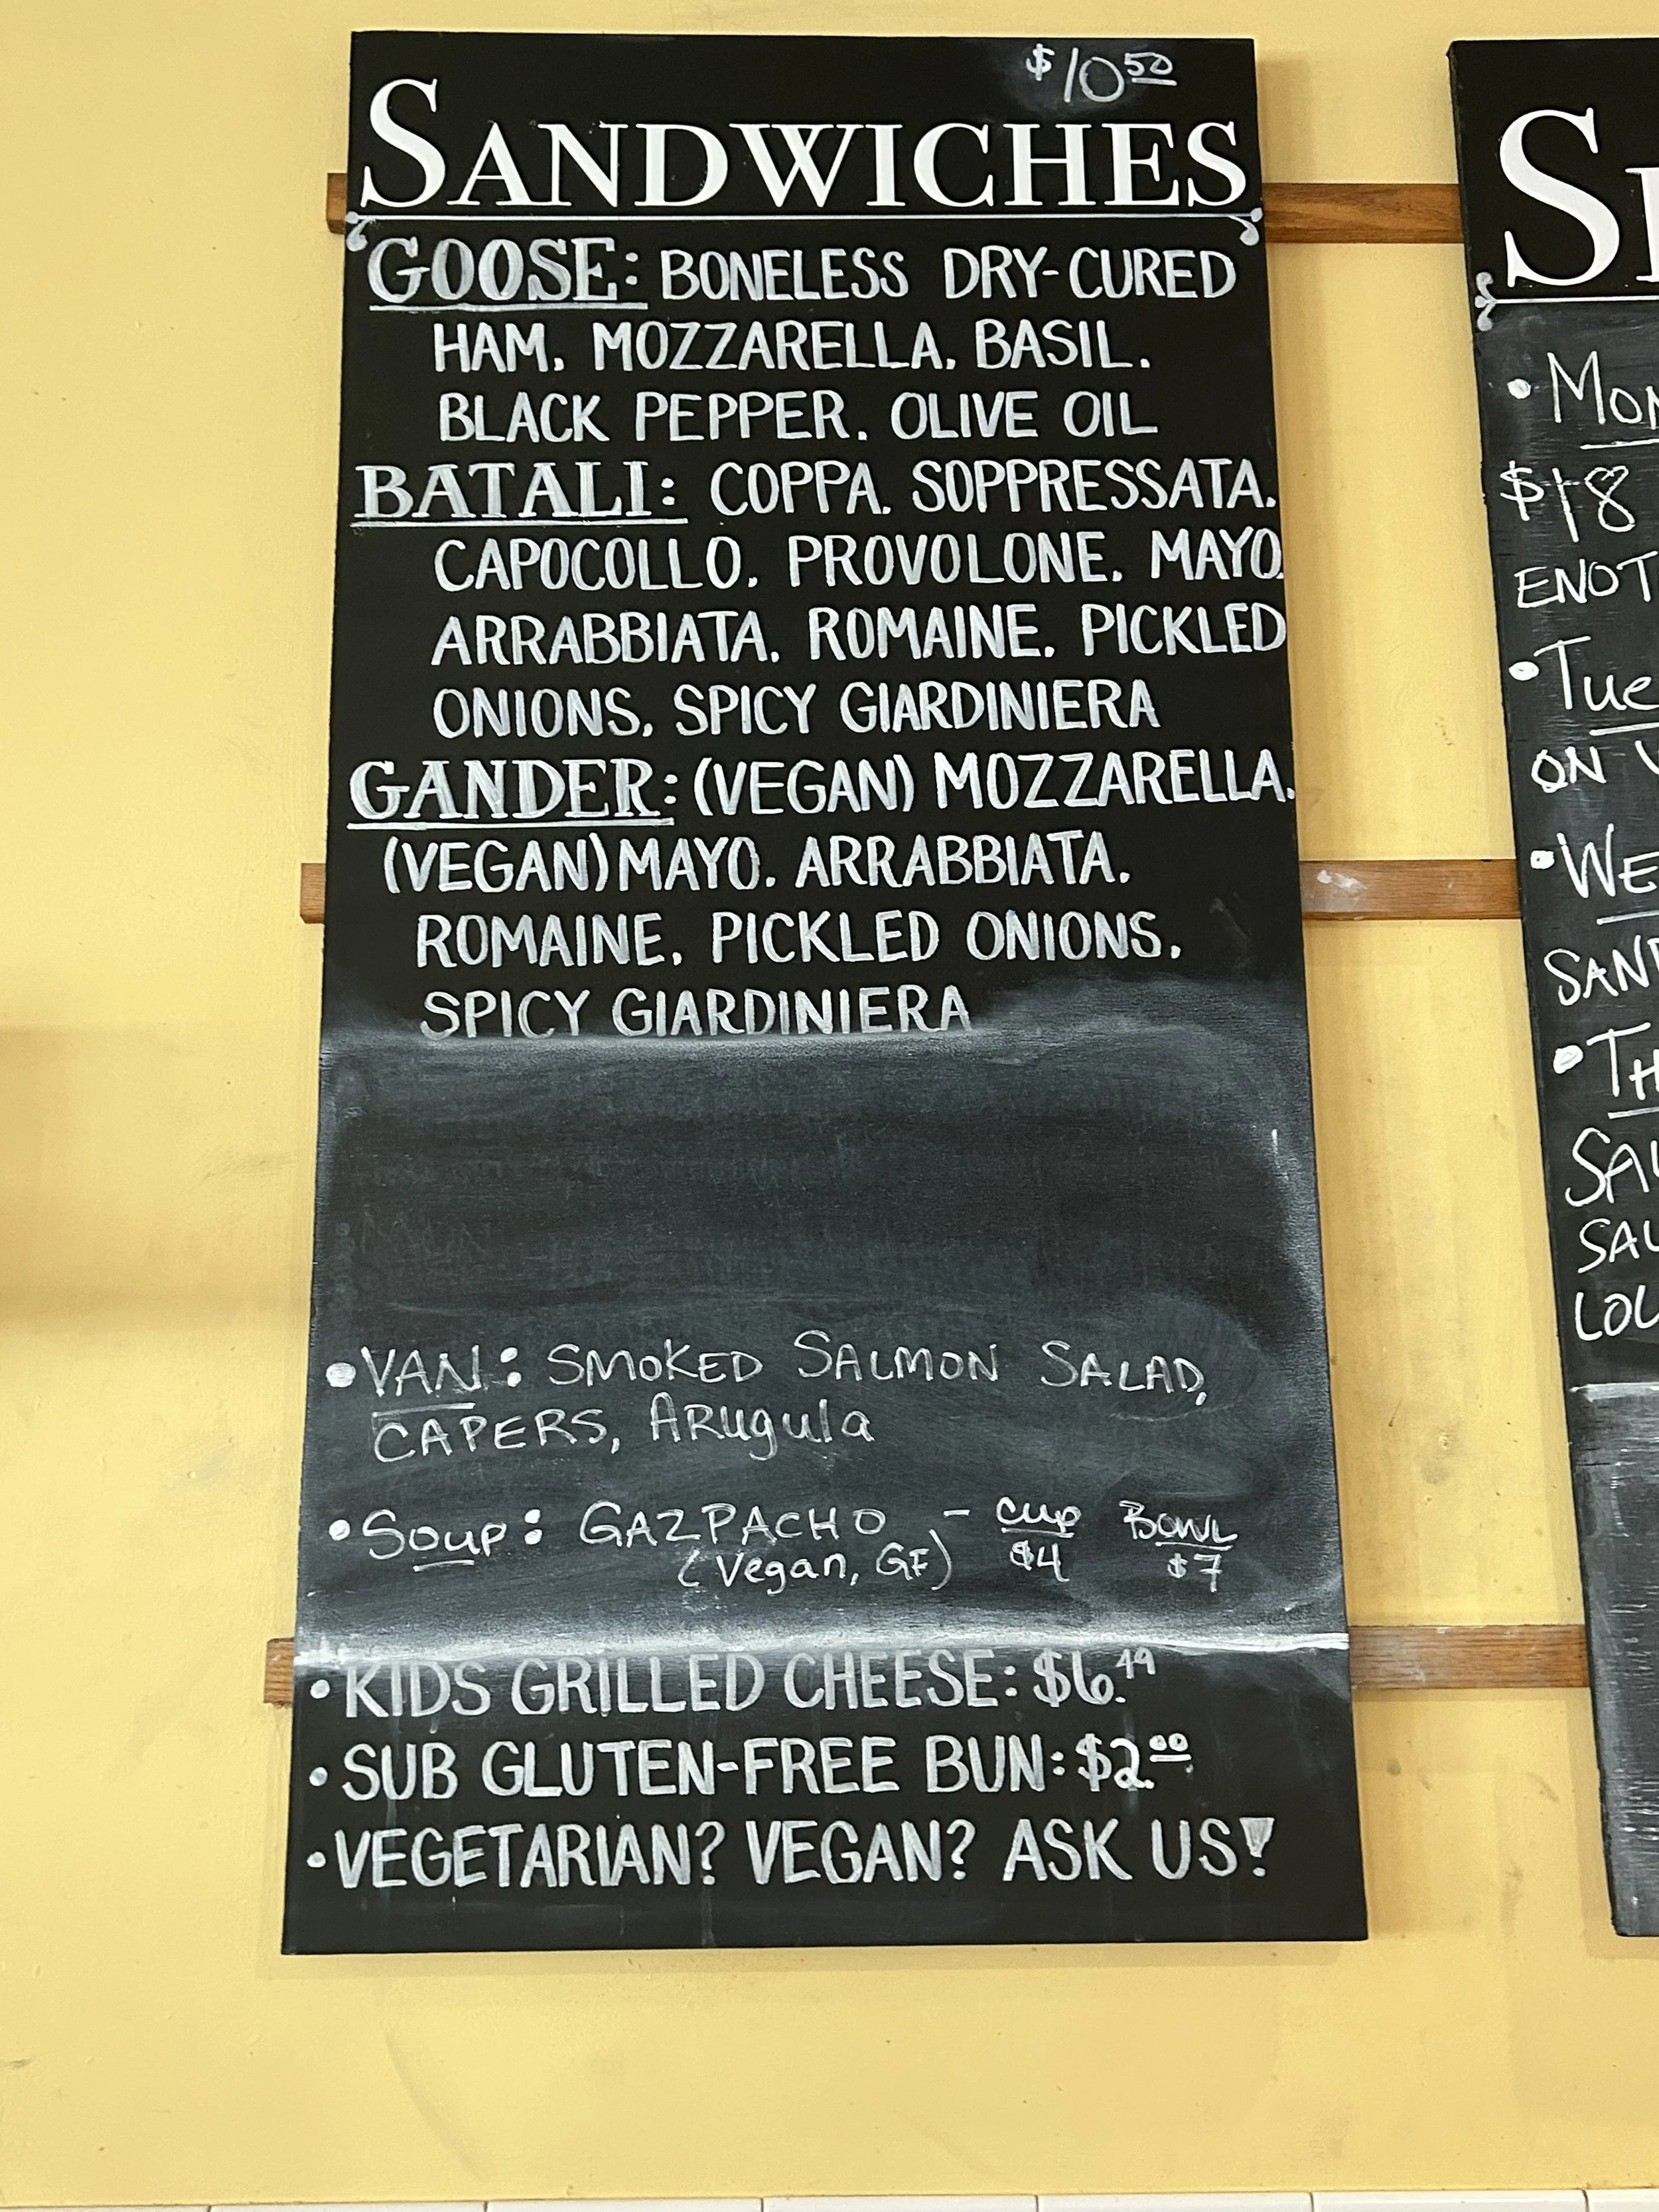 $10.50
SANDWICHES
GOOSE: BONELESS DRY-CURED
HAM. MOZZARELLA. BASIL.
BLACK PEPPER. OLIVE OIL
BATALI: COPPA. SOPPRESSATA.
CAPOCOLLO. PROVOLONE. MAYO.
ARRABBIATA. ROMAINE. PICKLED
ONIONS. SPICY GIARDINIERA
GANDER: (VEGAN) MOZZARELLA.
(VEGAN) MAYO. ARRABBIATA.
ROMAINE. PICKLED ONIONS.
SPICY GIARDINIERA
• VAN: SMOKED SALMON SALAD,
CAPERS, ARugula
• Soup: GAZPACHO - Cup BOWL
(Vegan, GF) $4 $7
• KIDS GRILLED CHEESE: $6.49
• SUB GLUTEN-FREE BUN: $2.00
• VEGETARIAN? VEGAN? ASK US!
$18
ON